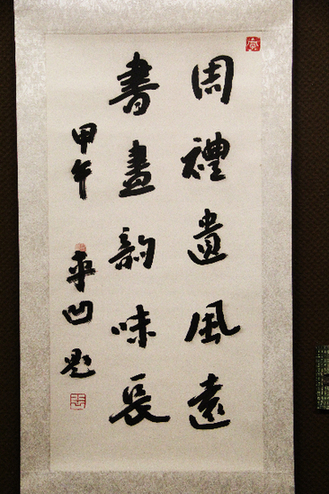 周禮遺風遠
書畫韵味長
甲午 平凹題